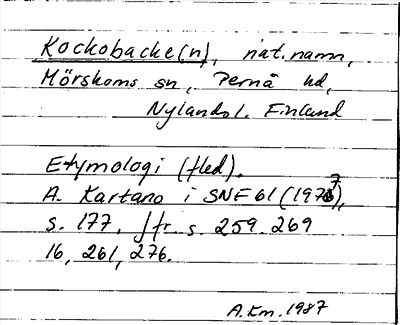 Kockobacke(n), nat.namn,
Mörskoms sn, Pernå hd,
Nylands l. Finland
Etymologi (fled).
A. Kartano i SNF 61 (1977),
s. 177. Jfr s. 259. 269
16, 261, 276.
A.Km. 1987